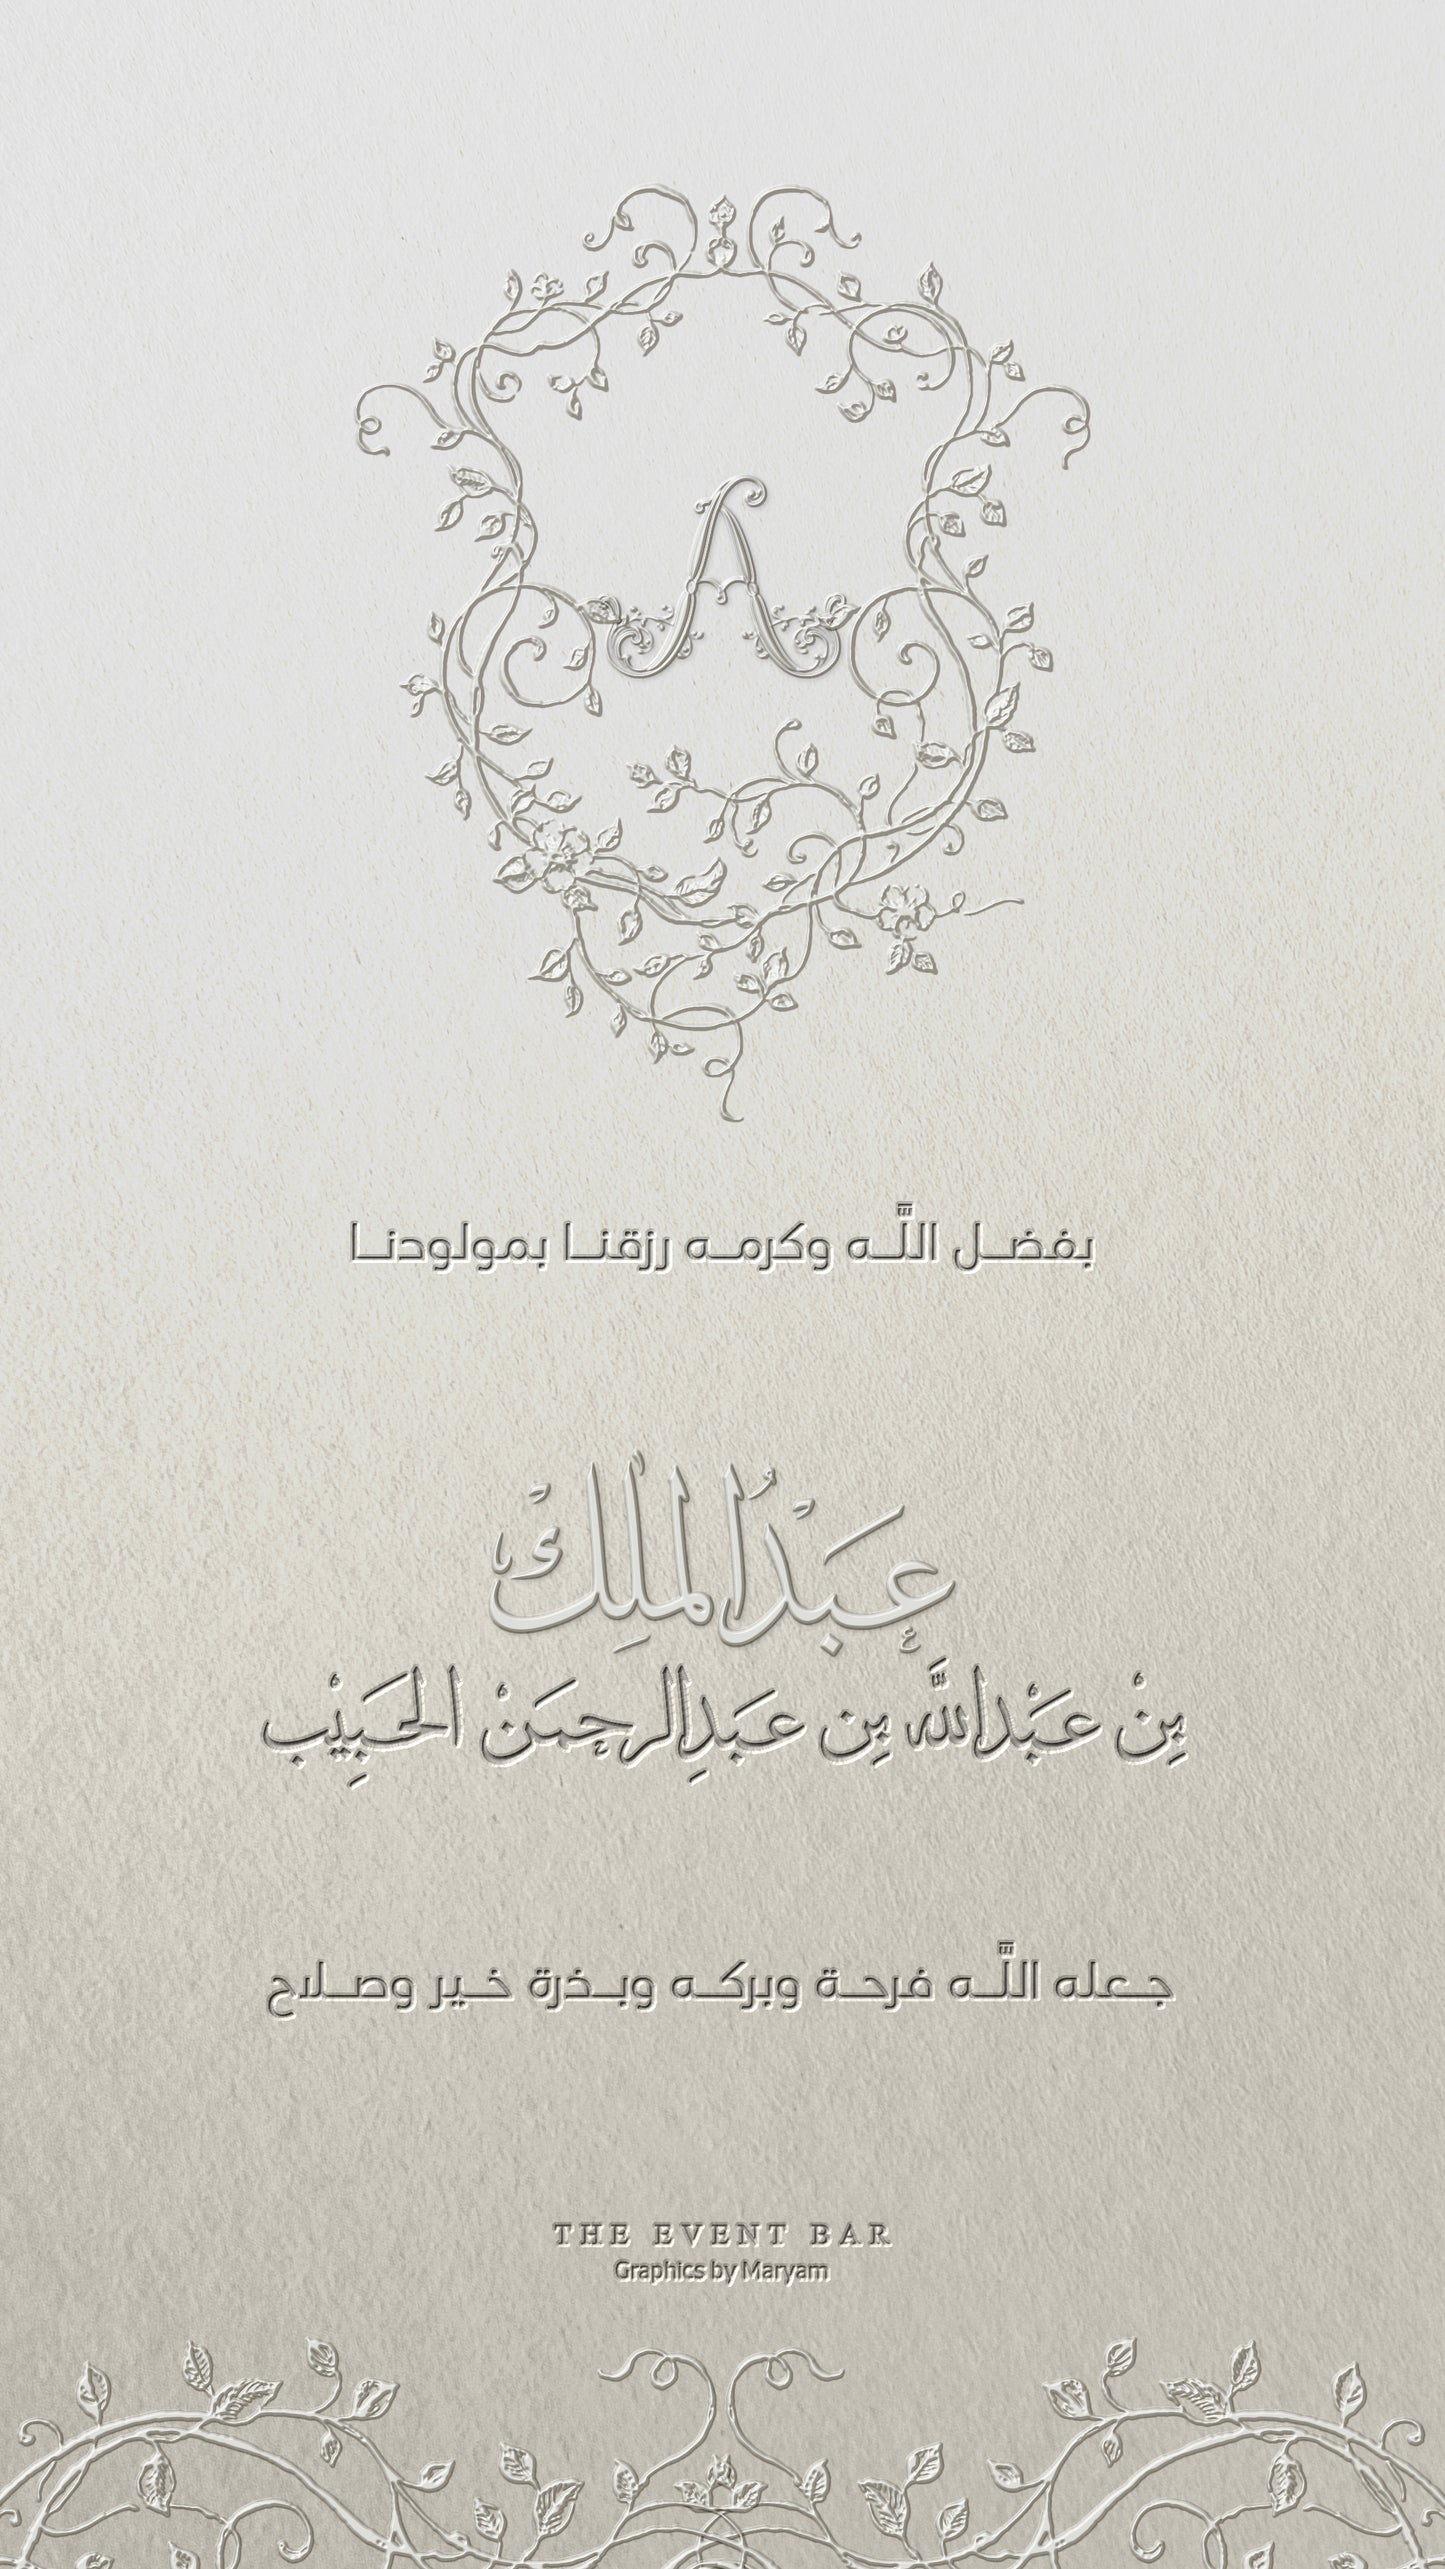 A
بفضــل اللَّــه وكرمــه رزقنــا بمولودنــا
عَبْدُالملِك
بِنْ عَبْدالله بِن عَبدِالرحمَنْ الحَبِيْب
جـعله اللَّــه فرحــة وبركــه وبــذرة خــير وصــلاح
THE EVENT BAR
Graphics by Maryam